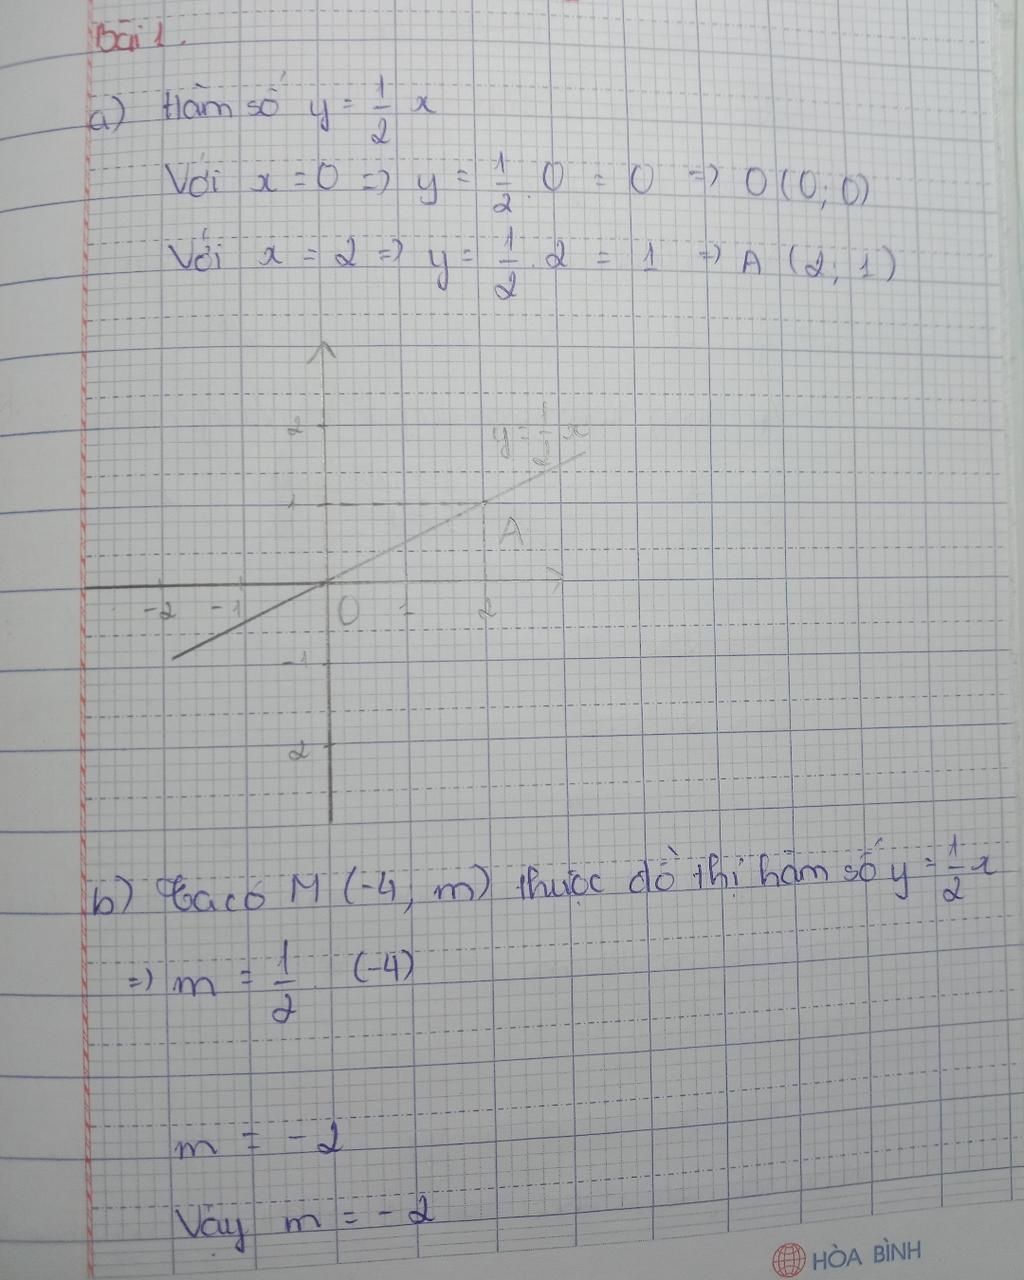 Bài 1.
a) Hàm số y = 1/2 x
Với x = 0 => y = 1/2 . 0 = 0 => O (0; 0)
Với x = 2 => y = 1/2 . 2 = 1 => A (2; 1)
2
y = 1/2 x
1
A
-2 -1 O 1 2
-1
2
b) Ta có M (-4, m) thuộc đồ thị hàm số y = 1/2 x
=> m = 1/2 (-4)
m = -2
Vậy m = -2
HÒA BÌNH